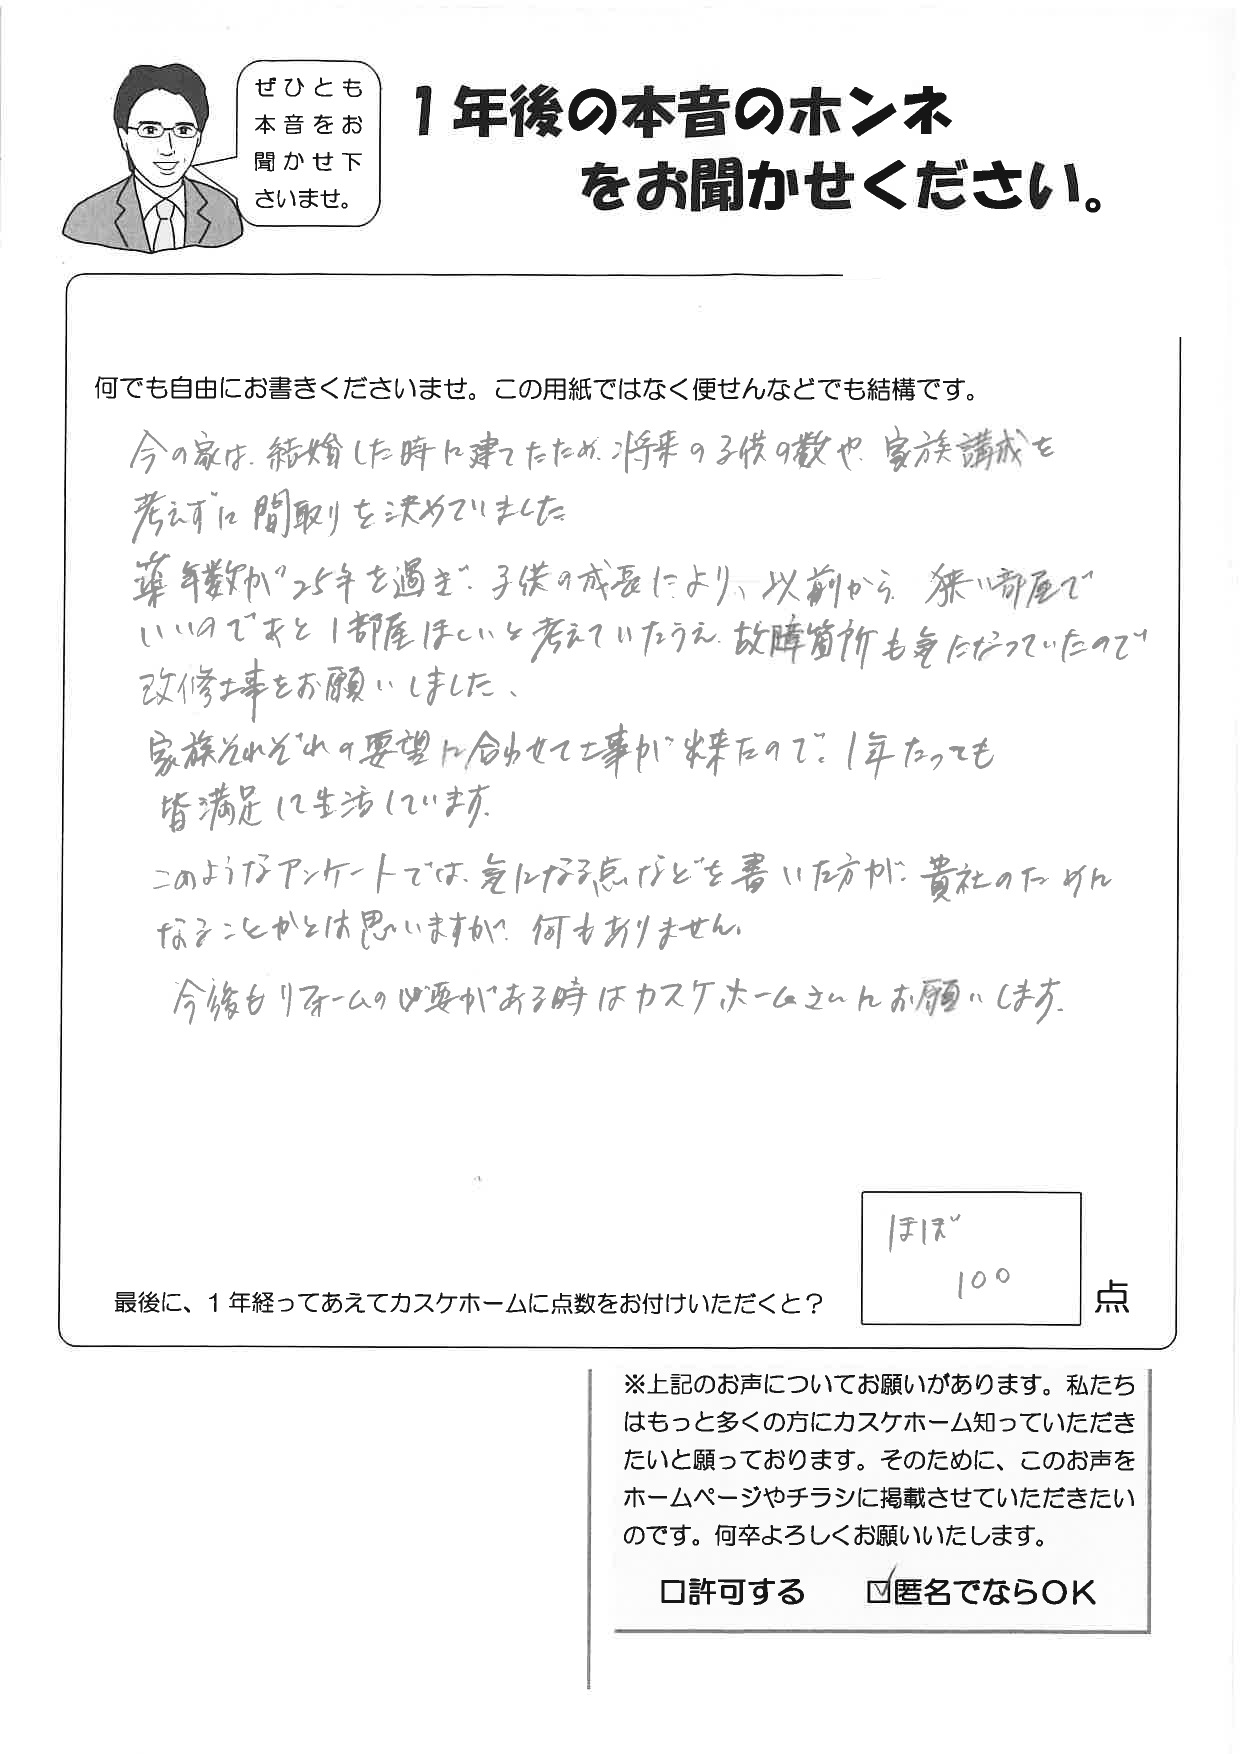 ぜひとも
本音をお
聞かせ下
さいませ。
1年後の本音のホンネ
をお聞かせください。
何でも自由にお書きくださいませ。この用紙ではなく便せんなどでも結構です。
今の家は、結婚した時に建てたため、将来の子供の数や、家族講成を
考えずに間取りを決めていました。
築年数が25年を過ぎ、子供の成長により、以前から、狭い部屋で
いいのであと1部屋ほしいと考えていたうえ、故障箇所も気にだっていたので
改修工事をお願いしました、
家族それぞれの要望に合わせて工事が出来たので、1年たっても
皆満足して生活しています。
このようなアンケートでは、気になる点などを書いた方が、貴社のために
なることかとは思いますが、何もありません。
今後もリフォームの必要がある時はカスケホームさんにお願いします。
ほぼ
100
最後に、1年経ってあえてカスケホームに点数をお付けいただくと？
点
※上記のお声についてお願いがあります。私たち
はもっと多くの方にカスケホーム知っていただき
たいと願っております。そのために、このお声を
ホームページやチラシに掲載させていただきたい
のです。何卒よろしくお願いいたします。
□許可する ☑匿名でならOK